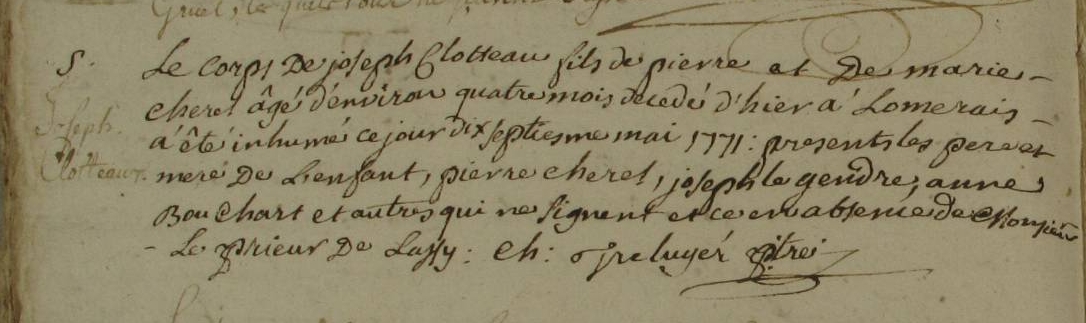 S.
Joseph
Clotteau
Le corps De joseph Clotteau fils de pierre et De marie
cherel âgé d'environ quatre mois décédé d'hier a' Lomerais
a'été inhumé ce jour dix septiesme mai 1771: presents les pere et
mere De L'enfant, pierre cherel, joseph le gendre, anne
Bouchart et autres qui ne signent et ce en absence de Monsieur
Le prieur De Lassy: ch: ptre